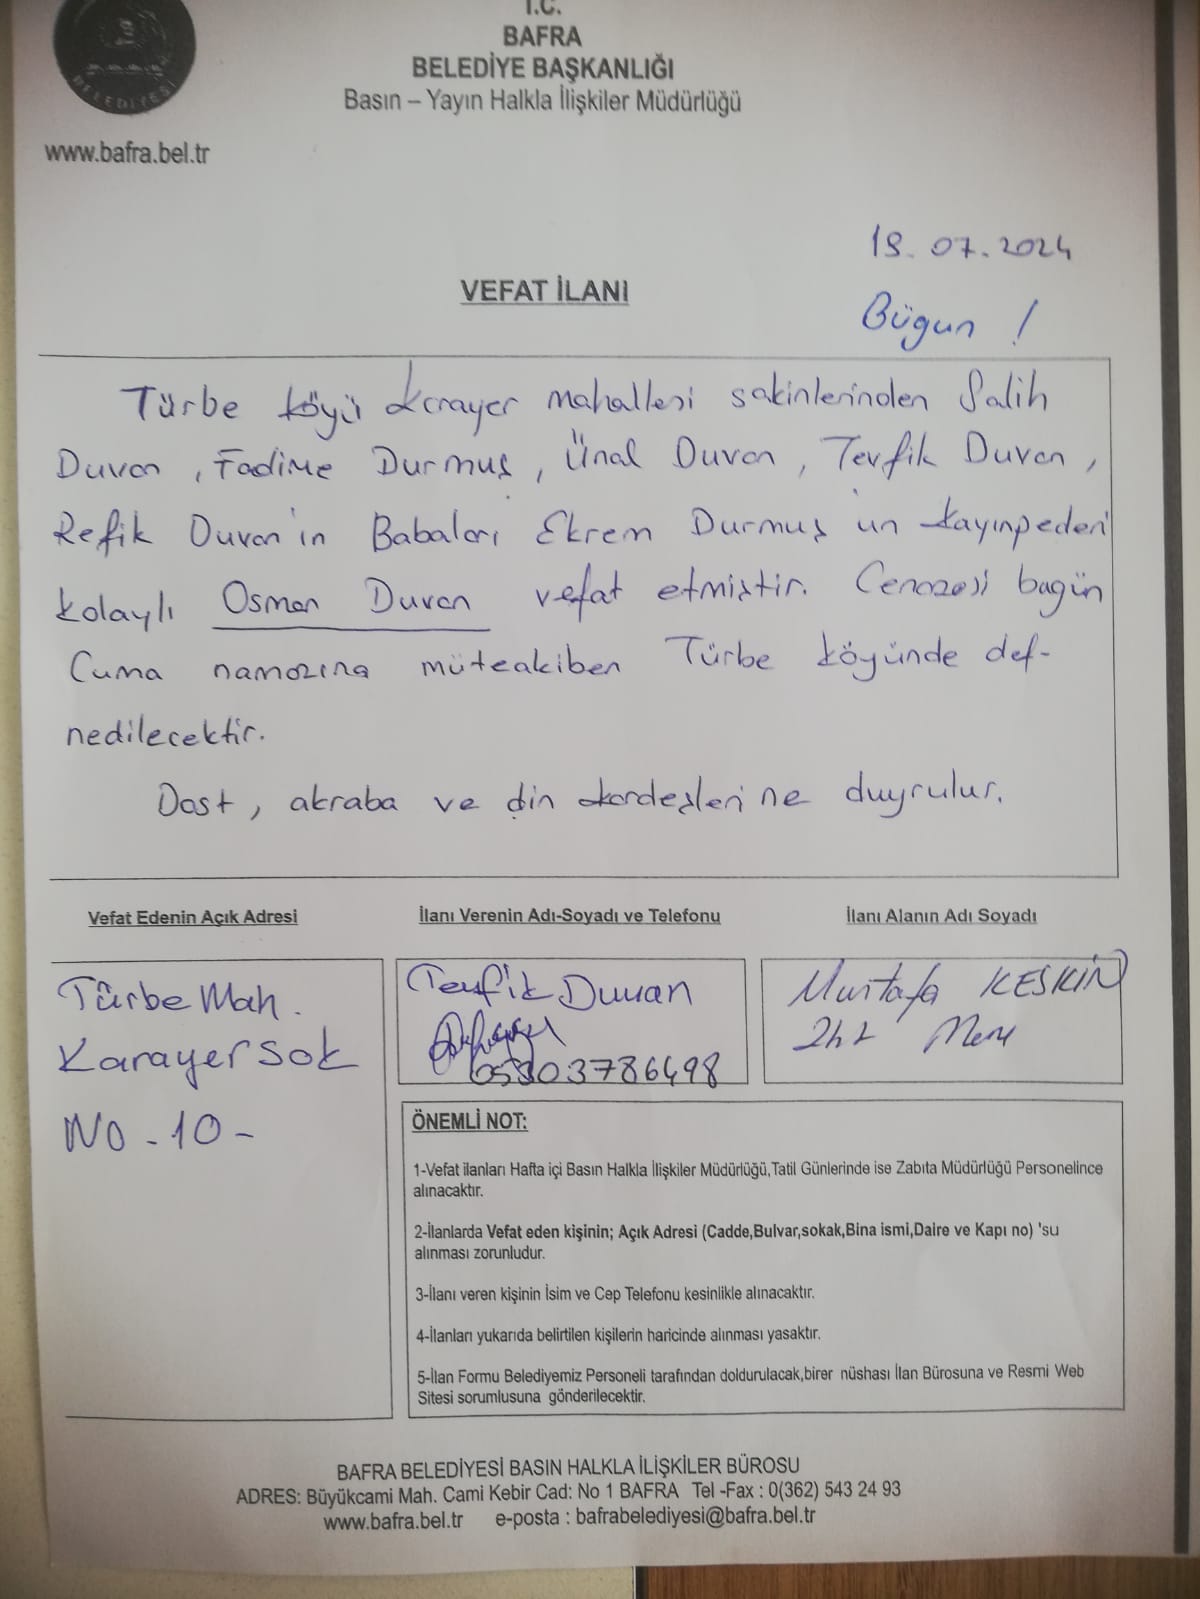 T.C.
BAFRA
BELEDİYE BAŞKANLIĞI
Basın – Yayın Halkla İlişkiler Müdürlüğü
BELEDİYESİ
www.bafra.bel.tr
19.07.2024
VEFAT İLANI
Bügun !
Türbe köyü Karayer mahallesi sakinlerinden Salih
Duvan , Fadime Durmuş , Ünal Duvan , Tevfik Duvan ,
Refik Duvan'ın Babaları Ekrem Durmuş'un kayınpederi
kolaylı Osman Duvan vefat etmiştir. Cenazesi bugün
Cuma namazına müteakiben Türbe köyünde def-
nedilecektir.
Dost , akraba ve din kardeşlerine duyrulur.
Vefat Edenin Açık Adresi
İlanı Verenin Adı-Soyadı ve Telefonu
İlanı Alanın Adı Soyadı
Türbe Mah.
Karayer sok
No - 10 -
Tevfik Duvan
Mustafa KESKİN
ÖNEMLİ NOT:
1-Vefat ilanları Hafta içi Basın Halkla İlişkiler Müdürlüğü,Tatil Günlerinde ise Zabıta Müdürlüğü Personelince
alınacaktır.
2-İlanlarda Vefat eden kişinin; Açık Adresi (Cadde,Bulvar,sokak,Bina ismi,Daire ve Kapı no) 'su
alınması zorunludur.
3-İlanı veren kişinin İsim ve Cep Telefonu kesinlikle alınacaktır.
4-İlanları yukarıda belirtilen kişilerin haricinde alınması yasaktır.
5-İlan Formu Belediyemiz Personeli tarafından doldurulacak,birer nüshası İlan Bürosuna ve Resmi Web
Sitesi sorumlusuna gönderilecektir.
BAFRA BELEDİYESİ BASIN HALKLA İLİŞKİLER BÜROSU
ADRES: Büyükcami Mah. Cami Kebir Cad: No 1 BAFRA Tel -Fax : 0(362) 543 24 93
www.bafra.bel.tr e-posta : bafrabelediyesi@bafra.bel.tr